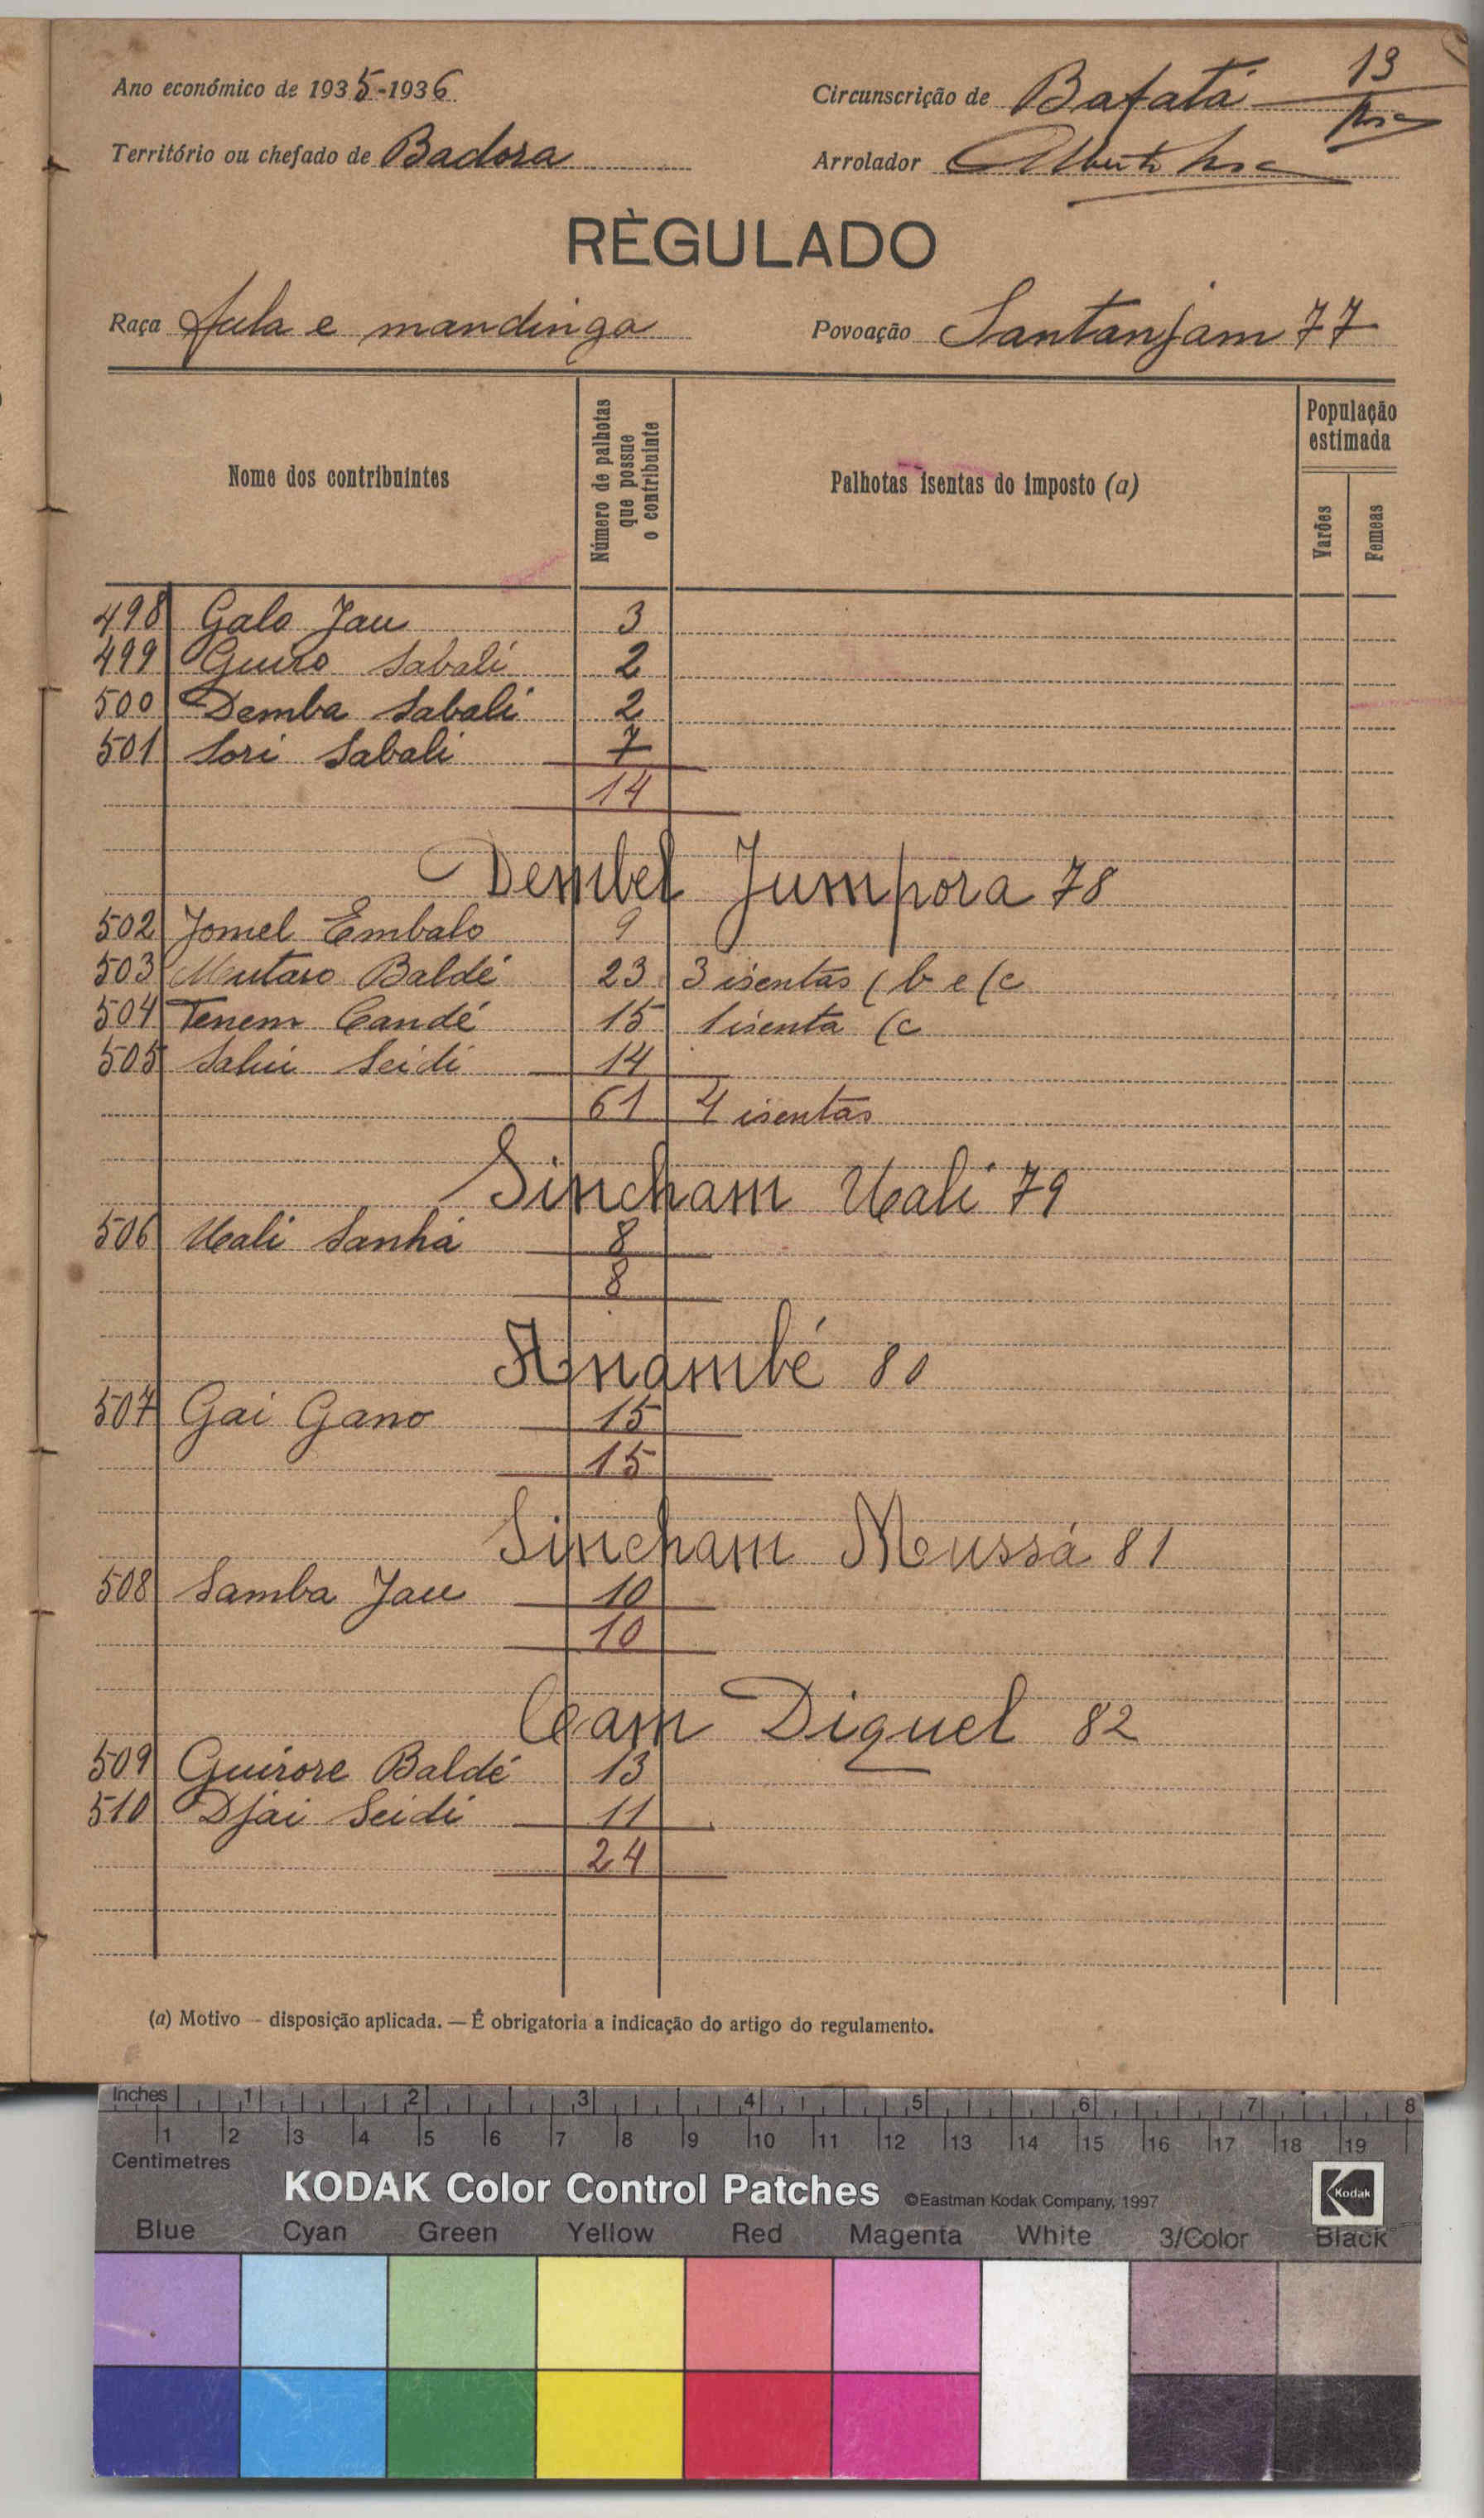 13
Ano económico de 1935-1936 Circunscrição de Bafatá
Território ou chefado de Badora Arrolador Alberto
RÈGULADO
Raça fula e mandinga Povoação Santanjam 77
Nome dos contribuintes
Número de palhotas que possue o contribuinte
Palhotas isentas do imposto (a)
População estimada
Varões
Femeas
498 Galo Jau 3
499 Guiro Sabali 2
500 Demba Sabali 2
501 Sori Sabali 7
14
Dembel Jumpora 78
502 Jomel Embalo 9
503 Mutaro Baldé 23 3 isentas (b e (c
504 Tenem Candé 15 1 isenta (c
505 Seidi 14
61 4 isentas
Sincham Uali 79
506 Uali Sanhá 8
8
Anambé 80
507 Gai Gano 15
15
Sincham Mussá 81
508 Samba Jau 10
10
Cam Diquel 82
509 Guirore Baldé 13
510 Djai Seidi 11
24
(a) Motivo — disposição aplicada. — É obrigatoria a indicação do artigo do regulamento.
Inches 1 2 3 4 5 6 7 8
1 2 3 4 5 6 7 8 9 10 11 12 13 14 15 16 17 18 19
Centimetres
KODAK Color Control Patches ©Eastman Kodak Company, 1997 Kodak
Blue Cyan Green Yellow Red Magenta White 3/Color Black